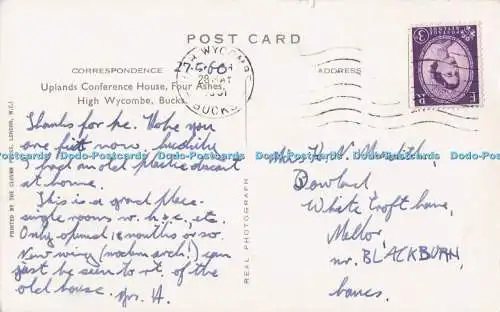 POST CARD
CORRESPONDENCE
ADDRESS
Uplands Conference House, Four Ashes,
High Wycombe, Bucks.
WYCOMBE
28 MAY
BUCKS
Thanks for . Hope you
are fit now. Luckily
I had an old plastic
at home.
This is a grand place -
single rooms w. h.&c., etc.
Only opened 18 months or so.
New wing (modern arch!) can
just be seen to rt. of the
old house. Yrs. H.
Meredith
White Croft Lane,
Mellor,
nr. BLACKBURN,
Lancs.
REAL PHOTOGRAPH
Dodo-Postcards Dodo-Postcards Dodo-Postcards Dodo-Postcards Dodo-Postcards